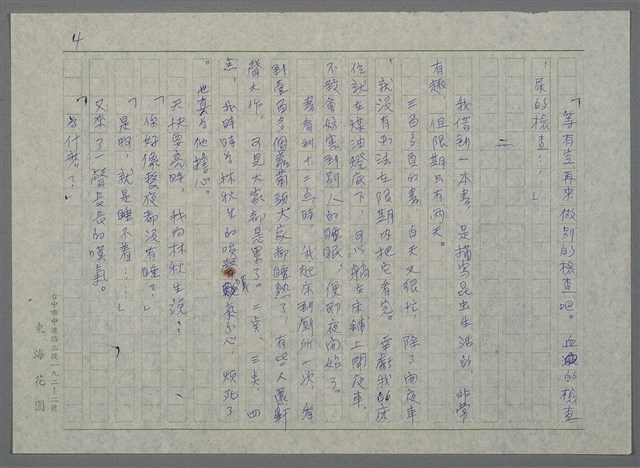 4
「等有空再來做別的檢查吧。血的檢查
，尿的檢查……」
二
我借到一本書，是描写昆虫生活的，非常
有趣，但限期只有兩天。
三百多頁的書，白天又很忙，除了開夜車
，我沒有办法在限期內把它看完。幸虧我的床
位就在煤油燈底下，可以躺在床鋪上開夜車，
不致會妨害到別人的睡眠，便即夜開始了。
書看到十二点時，我起床到廁所一次，看
到壹百多個 葡頭大家都睡熟了，有些人還鼾
聲大作，可見大家都是累了。二点、三点、四
点，我時時為林秋生的嘆氣分心，煩死了
。也真為他擔心。
天快要亮時，我向林秋生說：
「你好像整夜都沒有睡？」
「是啊，就是睡不着……」
又來了一聲長長的嘆氣。
「為什麽？」
台中市中港路三段一九二―二號
東海花園